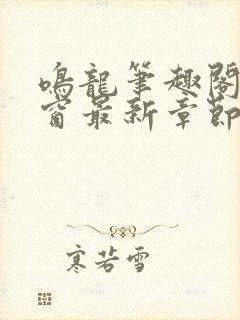 鳴龍筆趣閣
窗最新章節
寒若雪